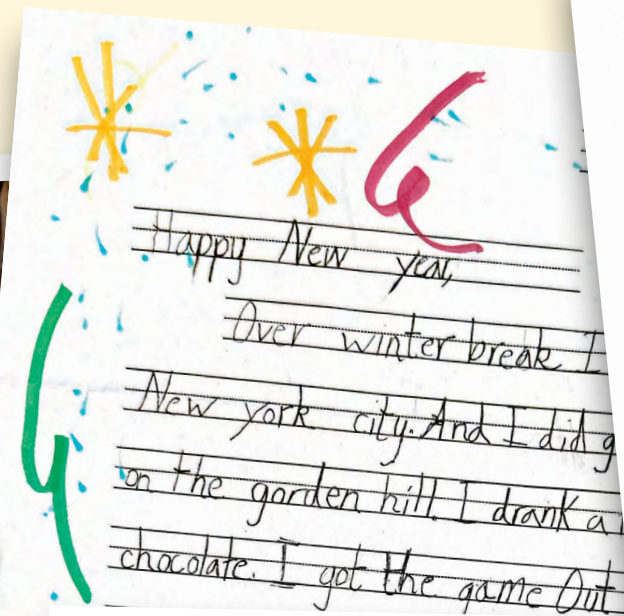 Happy New year,
Over winter break I
New york city. And I did g
on the gorden hill. I drank a
chocolate. I got the game Out